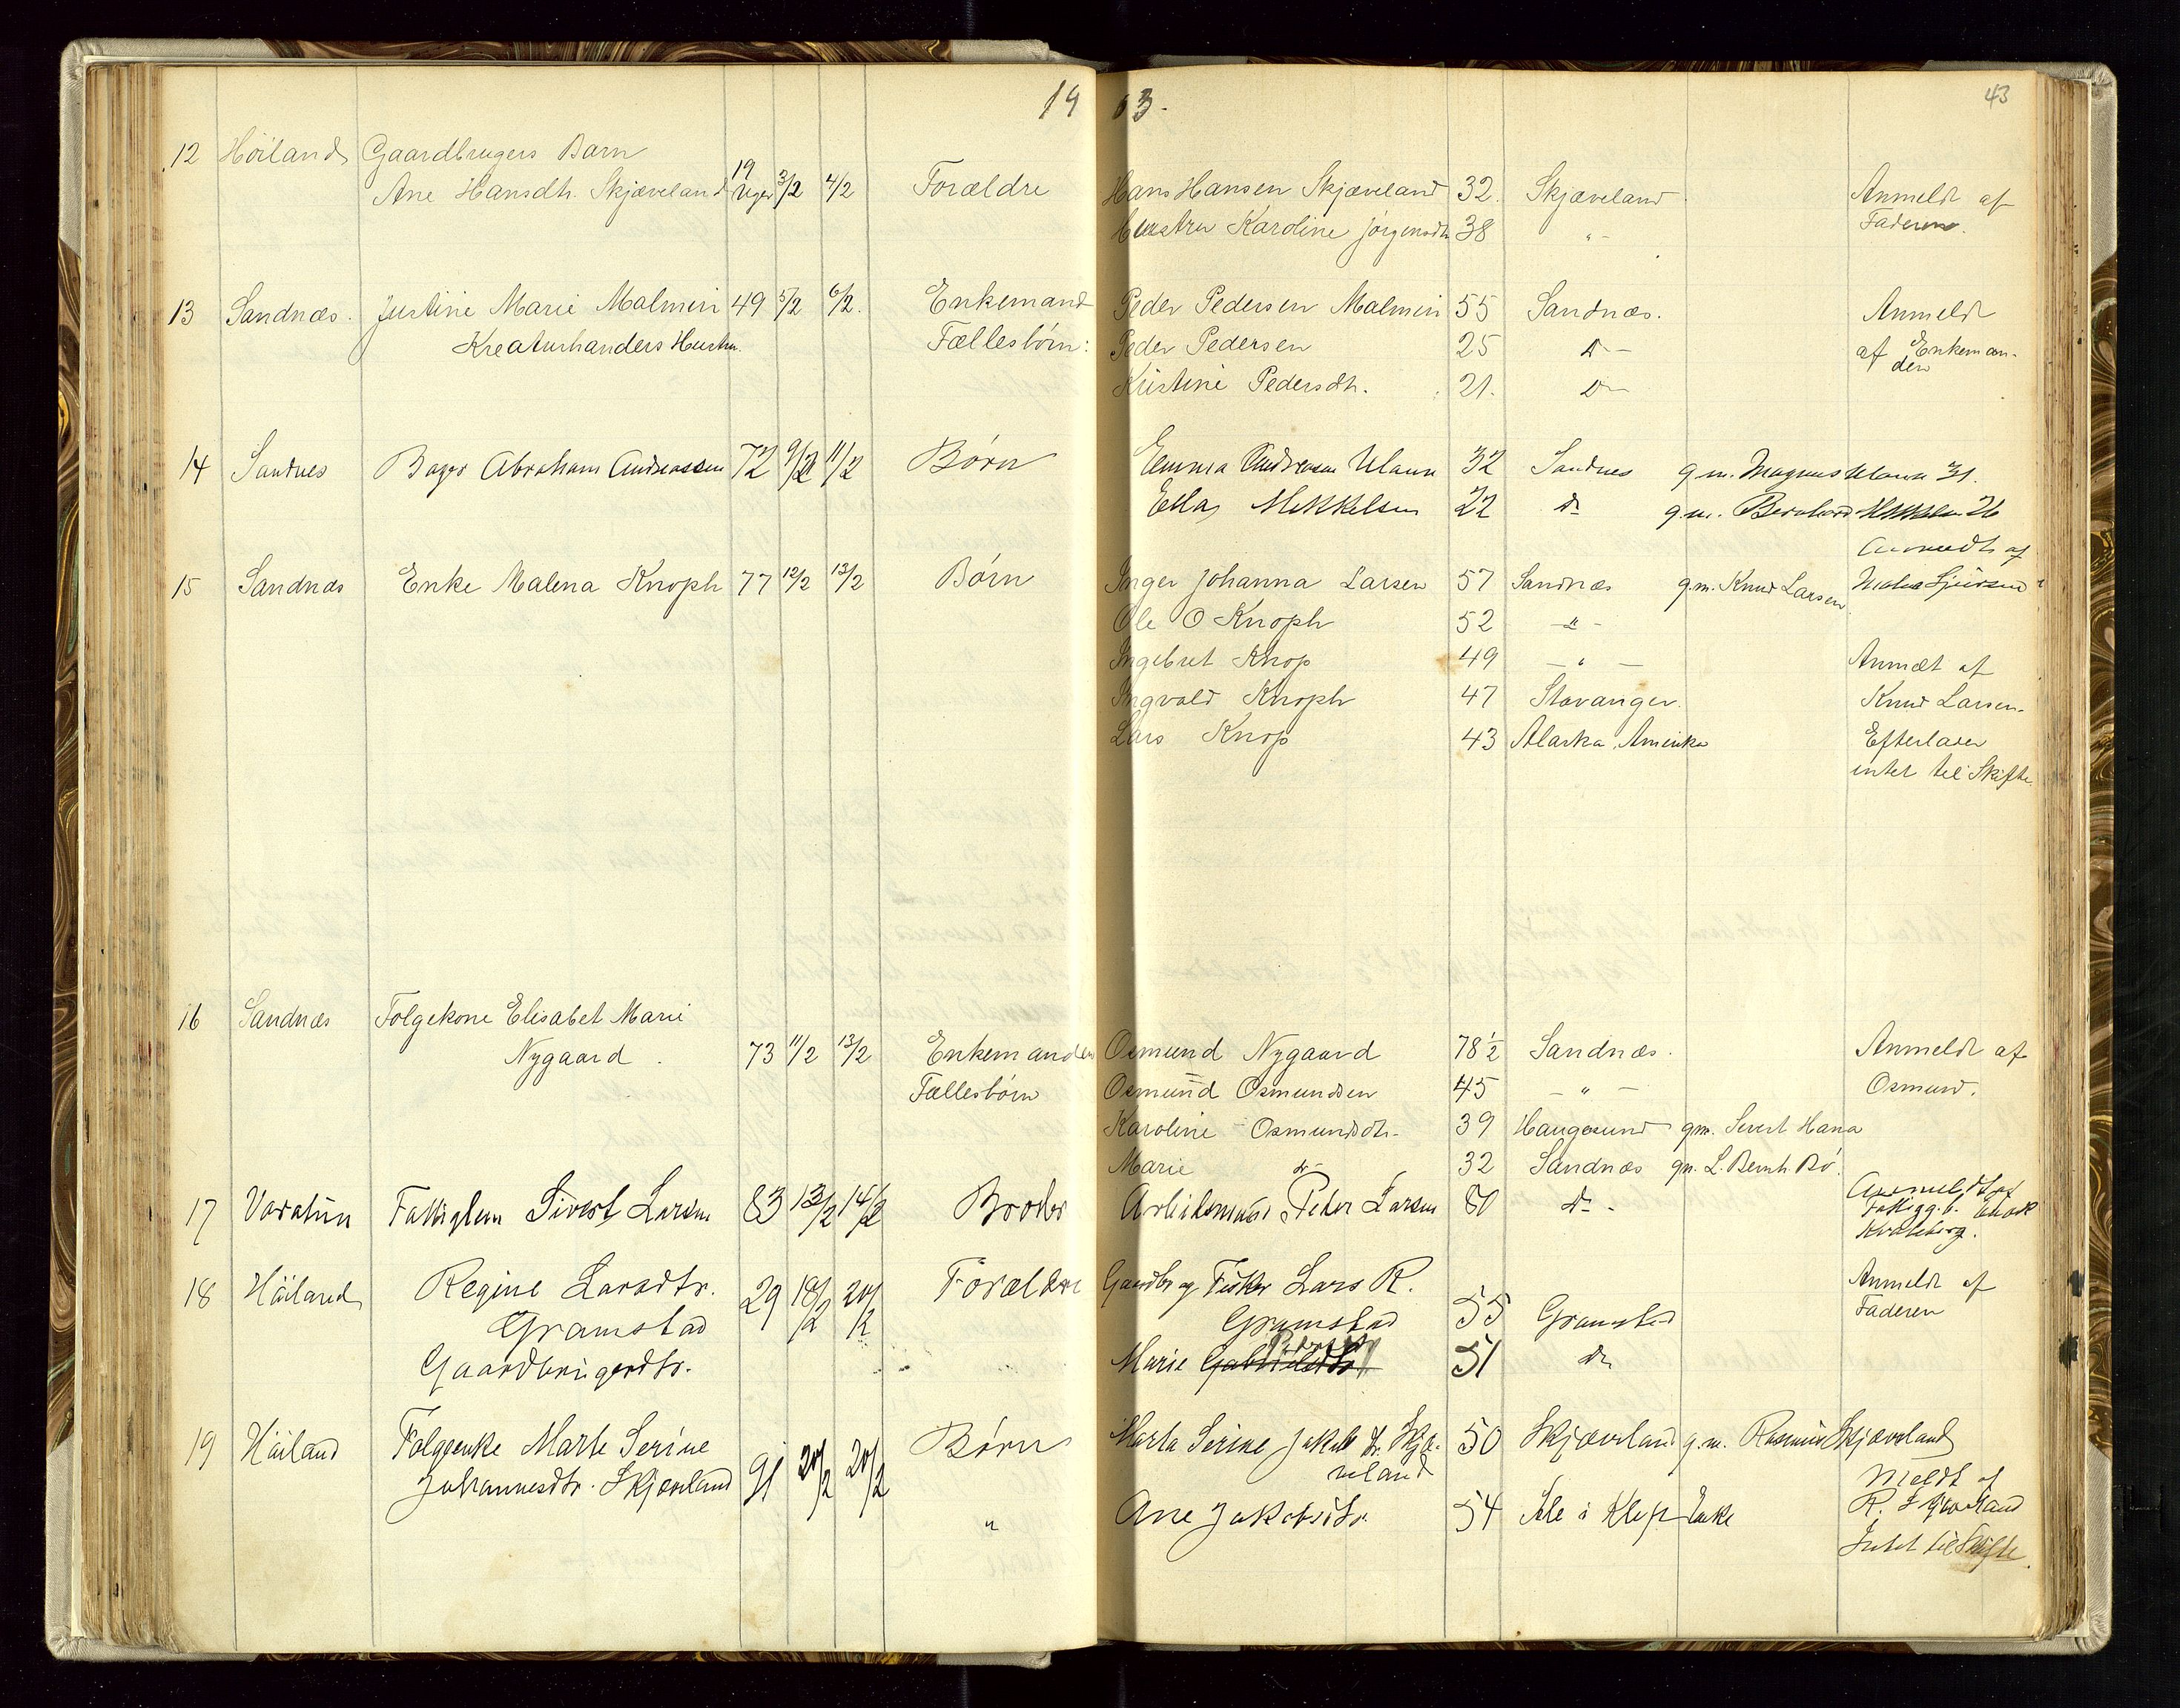 19 03.
43
12 Höiland Gaardbrugers Barn
Ane Hansdh. Skjæveland 19 Uger 3/2 4/2 Forældre Hans Hansen Skjæveland 32. Skjæveland Anmeldt af
Hustru Karoline Jörgensdh 38 " - Faderen.
13 Sandnæs. Justine Marie Malmin 49 5/2 6/2. Enkemand Peder Pedersen Malmin 55 Sandnæs. Anmeldt
Kreaturhanders Hustru. Fællesbörn: Peder Pedersen 25 D - af Enkeman-
den
Kristine Pedersdh. 21. D -
14 Sandnes Bager Abraham Andreassen 72 9/2 11/2 Börn Emma Andreasen Ulann 32 Sandnes g.m. Magnus 31.
Ella Mikkelsen 22 D g.m. Bernhard 26
Anmeldt af
15 Sandnæs Enke Malena Knoph 77 12/2 13/2 Börn Inger Johanna Larsen 57 Sandnæs g.m. Knud Larsen.
Ole O Knoph 52 - " -
Ingebret Knop 49 - " - Anmelt af
Ingvald Knoph 47 Stavanger. Knud Larsen.
Lars Knop 43 Alaska, Amerika Efterlader
intet til Skifte.
16 Sandnæs Folgekone Elisabet Marie
Nygaard. 73 11/2 13/2 Enkemanden Osmund Nygaard 78½ Sandnæs. Anmeldt af
Fællesbörn Osmund Osmundsen 45 - " - Osmund.
Karoline Osmundsdh. 39 Haugesund gm. Sivert Hana
Marie d- 32 Sandnæs gm. L. Bernh. Bö.
17 Varatun Fattiglem Sivert Larsen 83 13/2 14/2 Broder Arbeidsmand Peder Larsen 80 D - . Anmeldt af
Kvaleberg.
18 Håiland Regine Larsdtr. 29 18/2 20/2 Forældre Gaardbr og Fisker Lars R. Anmeldt af
Gramstad Gramstad 55 Gramstad Faderen
Gaardbrugerdtr. Marie Gabrielsdtr 51 D
19 Håiland Folgeenke Marte Serine Börn Marta Serine Jakobs dr. Skjæ- 50 Skjæveland g.m. Rasmus Skjæveland
Johannesdtr. Skjæveland 91 20/2 20/2 veland Meldt af
" Ane Jakobsdtr. 54 i Klep Enke R. Skjæveland
Intet til Skifte.